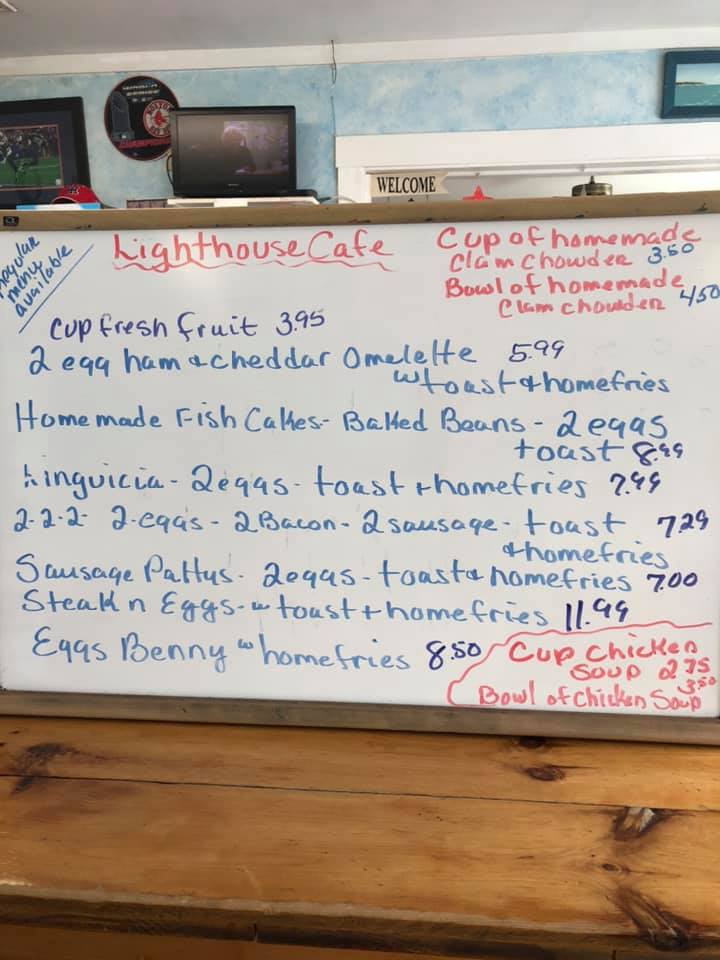 WORLD SERIES
BOSTON RED SOX
CHAMPIONS
WELCOME
Regular
menu
available
Lighthouse Cafe
Cup of homemade
Clam Chowder 3.50
Bowl of homemade
Clam chowder 4.50
Cup fresh fruit 3.95
2 egg ham & cheddar Omelette 5.99
w toast & homefries
Homemade Fish Cakes - Baked Beans - 2 eggs
toast 8.99
Linguicia - 2 eggs - toast + homefries 7.99
2-2-2- 2-eggs - 2 Bacon - 2 sausage - toast 7.29
& homefries
Sausage Pattys - 2 eggs - toast & homefries 7.00
Steak n Eggs - w toast + homefries 11.99
Eggs Benny w homefries 8.50
Cup Chicken
Soup 2.75
Bowl of Chicken Soup 3.50